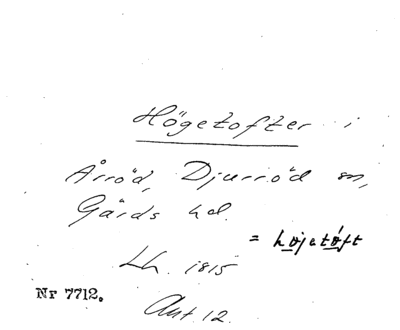 Högetofter i
Årröd, Djurröd sn,
Gärds hd.
= höjetóft
Lh. 1815
Nr 7712.
Akt 12.